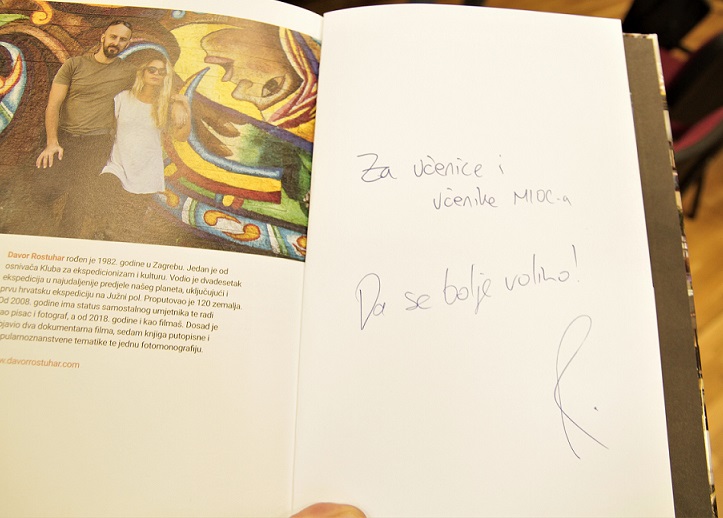 Davor Rostuhar rođen je 1982. godine u Zagrebu. Jedan je od
osnivača Kluba za ekspedicionizam i kulturu. Vodio je dvadesetak
ekspedicija u najudaljenije predjele našeg planeta, uključujući i
prvu hrvatsku ekspediciju na Južni pol. Proputovao je 120 zemalja.
Od 2008. godine ima status samostalnog umjetnika te radi
kao pisac i fotograf, a od 2018. godine i kao filmaš. Dosad je
objavio dva dokumentarna filma, sedam knjiga putopisne i
popularnoznanstvene tematike te jednu fotomonografiju.
www.davorrostuhar.com
Za učenice i
učenike MIOC-a
Da se bolje volimo!